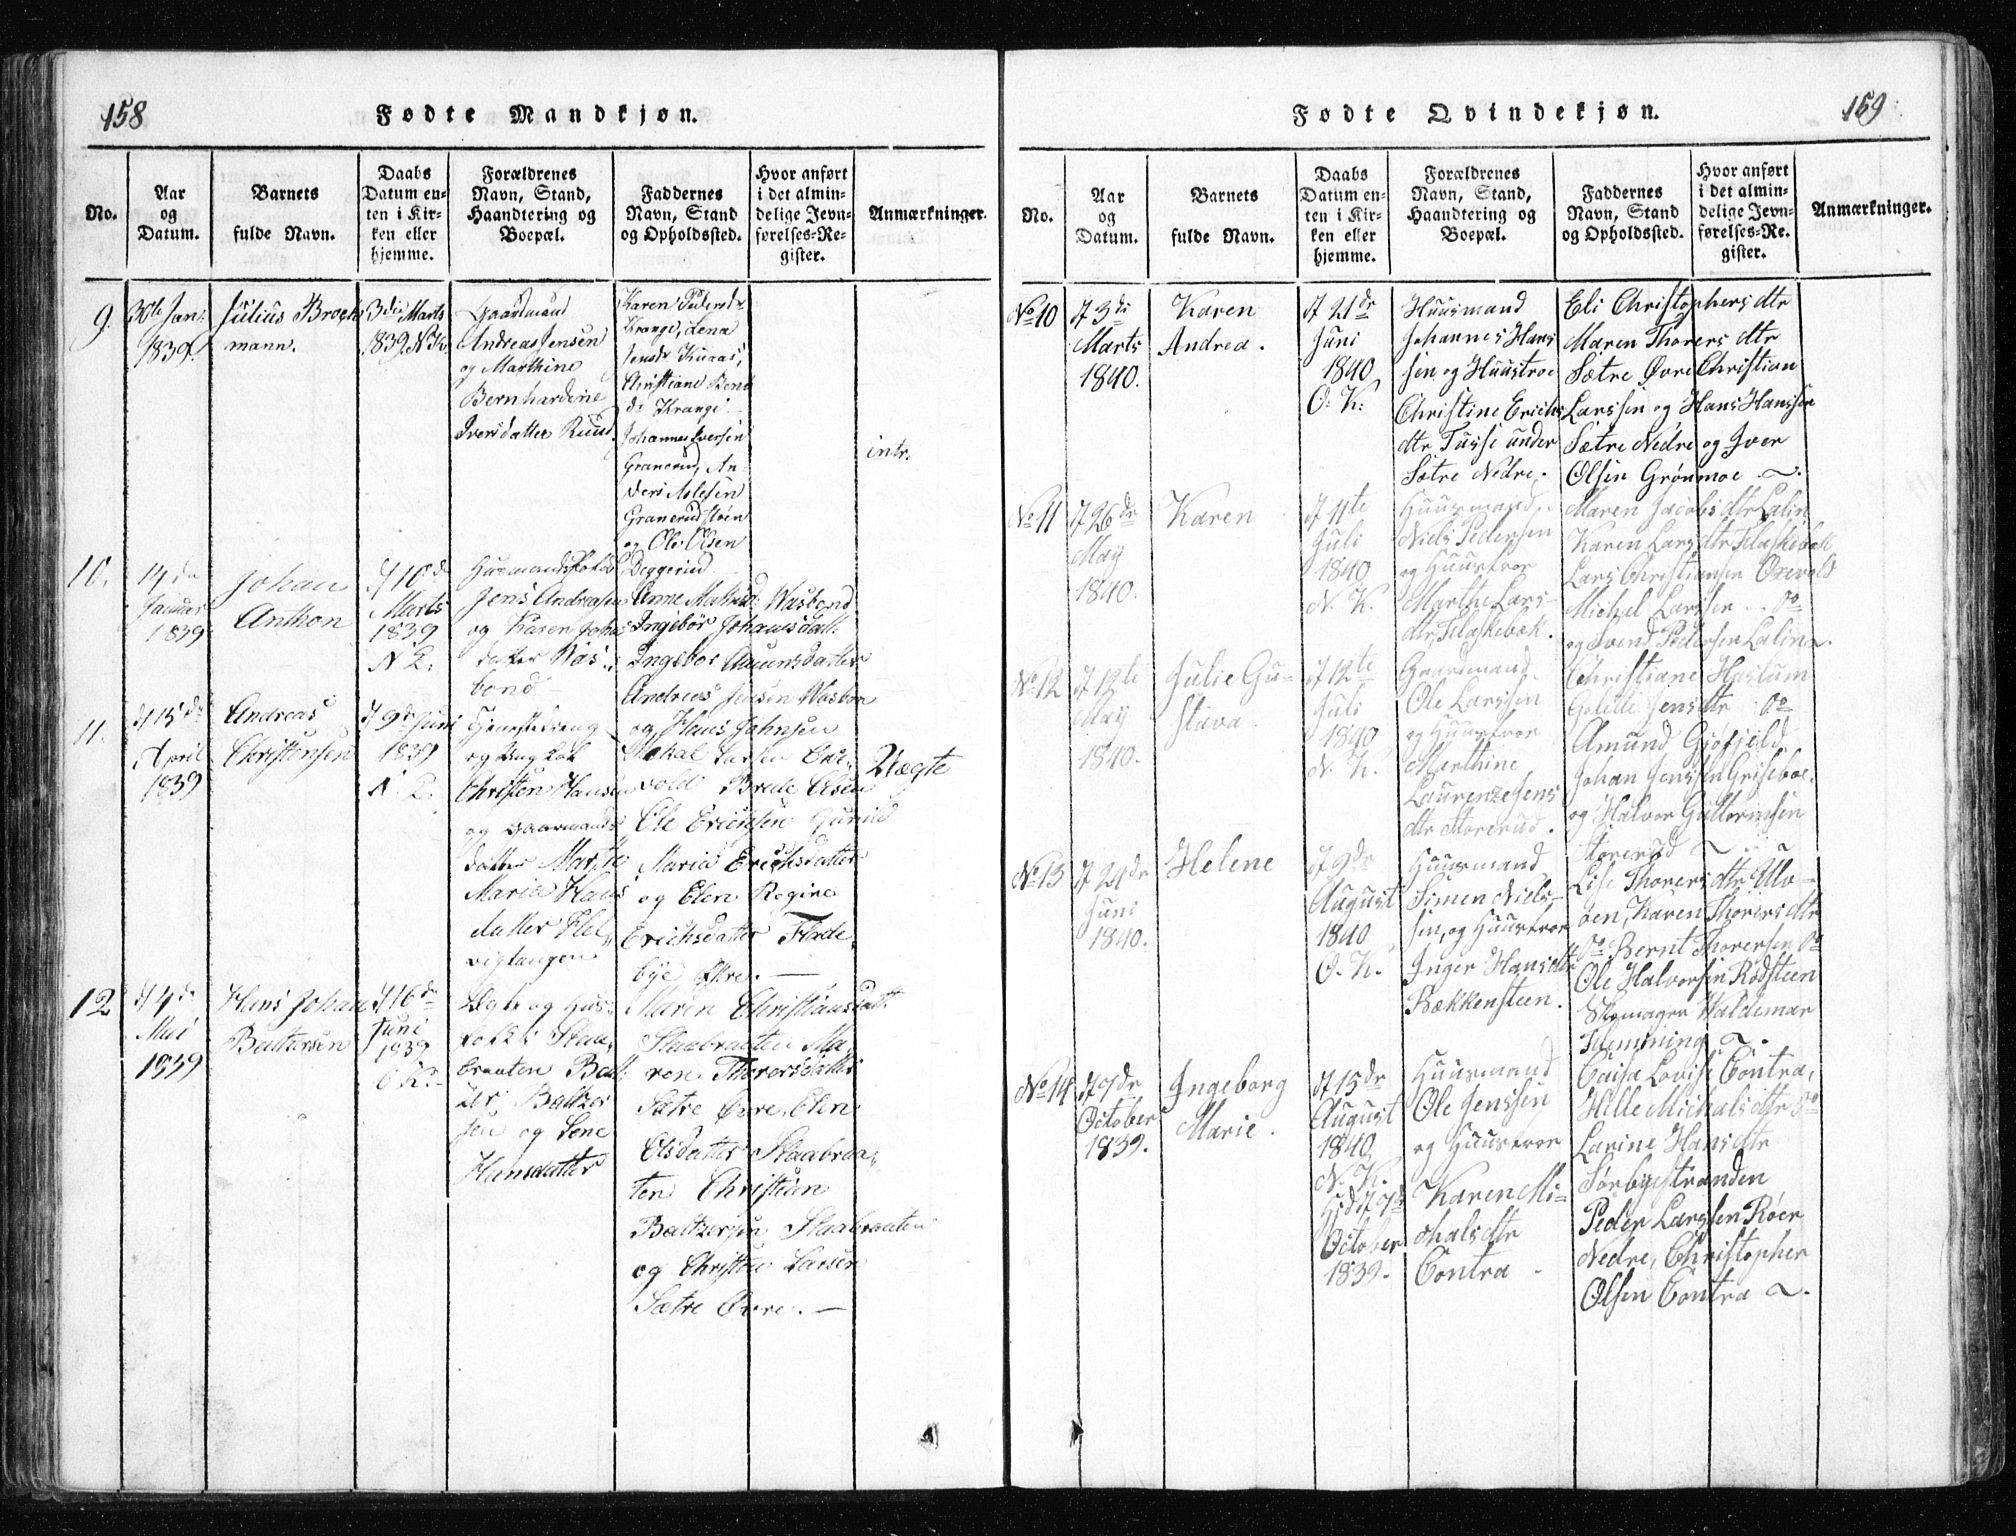 158
Fødte Mandkjøn.
No.
Aar
og
Datum.
Barnets
fulde Navn.
Daabs
Datum en-
ten i Kir-
ken eller
hjemme.
Forældrenes
Navn, Stand,
Haandtering og
Boepæl.
Faddernes
Navn, Stand
og Opholdssted.
Hvor anført
i det almin-
delige Jevn-
førelses-Re-
gister.
Anmærkninger.
9.
30te Jan:
1839.
Julius Brock
mann.
3die Marts
1839 N.K.
Gaardmand
Andreas Jensen
og Marthine
Bernhardine
Iversdatter Ruud
Karen Pedersdr
Krange, Lena
Jensdr
Christiane Bend
dr Krange
Johannes Iversen
Granerud, An-
ders Aslesen
Granerudstøen
og Ole Olsen
Deggerud
intr.
10.
14de
Januar
1839
Johan
Anthon
d 10de
Marts
1839
N K.
Jens Andreasen
og Karen Johns
datter Was-
bond
Anne Wasbond
Ingebor Johansdatt:
Ingebor Amunsdatter
Andreas Jensen Wasbon
og Hans Johnsen
11.
d 15de
April
1839
Andreas
Christensen
d 9de Juni
1839
N. K.
Tjenestedreng
og Ungkal
Christen Hansen
og Gaarmands
datter Marthe
Maria Hans
datter Hel-
vigtangen
Mikal Larsen Oxe-
vold Brede Olsen
Ole Erichsen Gunild
Maria Erichsdatter
og Elen Regine
Erichsdatter Flade-
bye Øvre. —
Uægte
12
d 4de
Mai
1839
Hans Johan
Baltzersen
d 16de
Juni
1839
O K.
Ægte og Hus-
folk: Skaa-
braaten Balt-
zer Baltzer
sen og Lene
Hansdatter
Maren Christiansdatt.
Skaabraaten Ma-
ren Thorersdatter
Sætre Øvre, Elen
Olsdatter Skaabraa-
ten Christian
Baltzersen Skaabraaten
og Christian Larsen
Sætre Øvre. —
159.
Fødte Qvindekjøn.
No.
Aar
og
Datum.
Barnets
fulde Navn.
Daabs
Datum en-
ten i Kir-
ken eller
hjemme.
Forældrenes
Navn, Stand,
Haandtering og
Boepæl.
Faddernes
Navn, Stand
og Opholdssted.
Hvor anført
i det almin-
delige Jevn-
førelses-Re-
gister.
Anmærkninger.
No 10
d 3di
Marts
1840.
Karen
Andrea.
d 21de
Juni
1840
O. K.
Huusmand
Johannes Hans
sen og Huustroe
Christine Erichs
dtr Tusse under
Sætre Nedre.
Eli Christophersdtr
Maren Thorersdtr
Sætre Øvre Christian
Larssen og Hans Hanssen
Sætre Nedre og Iver
Olsen Grønmoe
No 11
d 26de
May
1840.
Karen
d 11te
Juli
1840
N. K.
Huusmand
Niels Pedersen
og Huustroe
Marthe Lars-
dtr, Flaskebæk.
Maren Jacobsdtr Lalin
Karen Larsdtr Flaskebæk
Lars Christiansen Oxevold
Michel Larssen do
og Svend Pedersen Lalin
No 12
d 12te
May
1840.
Julie Gu-
stava.
d 12te
Juli
1840
N. K.
Gaardmand
Ole Larssen
og Huustroe
Marthine
Laurenze Jens
dtr Storerud.
Christiane Haslum
Jensdtr do
Amund Gjøfjeld
Johan Jenssen Griseboe
og Halvor Guttormsen
Storerud
No 13
d 24de
Juni
1840.
Helene
d 9de
August
1840
O. K.
Huusmand
Simen Niels-
sen, og Huustroe
Inger Hansdtr
Bækkensteen.
Lise Thorersdtr Ulv-
øen, Karen Thorersdtr
do Bernt Thorersen do
Ole Halvorsen Rødsteen
Skomager Waldemar
Flemming
No 14
d 7de
October
1839.
Ingeborg
Marie.
d 15de
August
1840
N. K.
Hd d 7de
October
1839.
Huusmand
Ole Jenssen
og Huustroe
Karen Mi-
chalsdtr
Contra
Caisa Lovise Contra,
Hille Michalsdtr do
Larine Hansdtr
Sørbyestranden
Peder Larssen Røer
Nedre, Christopher
Olsen Contra